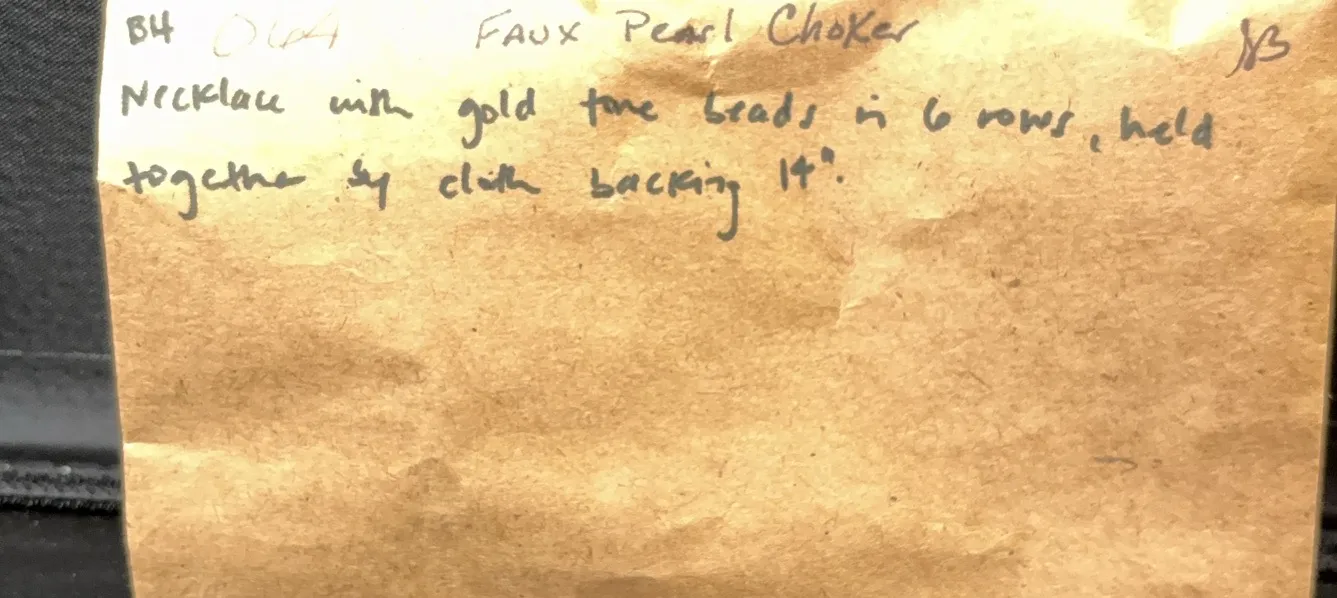 BH 064 Faux Pearl Choker
Necklace with gold tone beads in 6 rows, held
together by cloth backing 14".